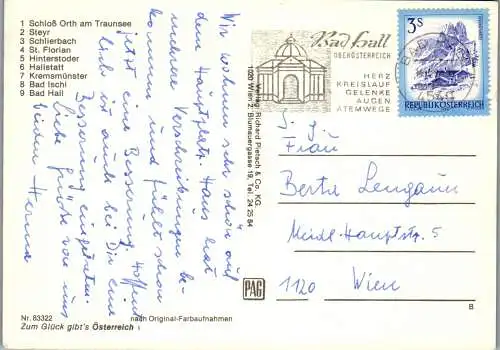 1 Schloß Orth am Traunsee
2 Steyr
3 Schlierbach
4 St. Florian
5 Hinterstoder
6 Hallstatt
7 Kremsmünster
8 Bad Ischl
9 Bad Hall
Wir wohnen sehr schön auf
dem Hauptplatz. Haus hat
mehrere Verschreibungen be-
kommen und fühlt schon
jetzt eine Besserung. Hoffent-
lich ist auch bei Dir eine
Besserung eingetreten.
Liebe Grüße von uns
beiden
Nr. 83322
nach Original-Farbaufnahmen
Zum Glück gibt's Österreich
Verlag: Richard Pietsch & Co. KG.
1020 Wien 2, Blumauergasse 19, Tel. 24 25 84
PAG
Bad Hall
OBERÖSTERREICH
HERZ
KREISLAUF
GELENKE
AUGEN
ATEMWEGE
BAD
3S
REPUBLIK ÖSTERREICH
Frau
Berta Lengauer
Meidl. Hauptstr. 5
1120 Wien
B